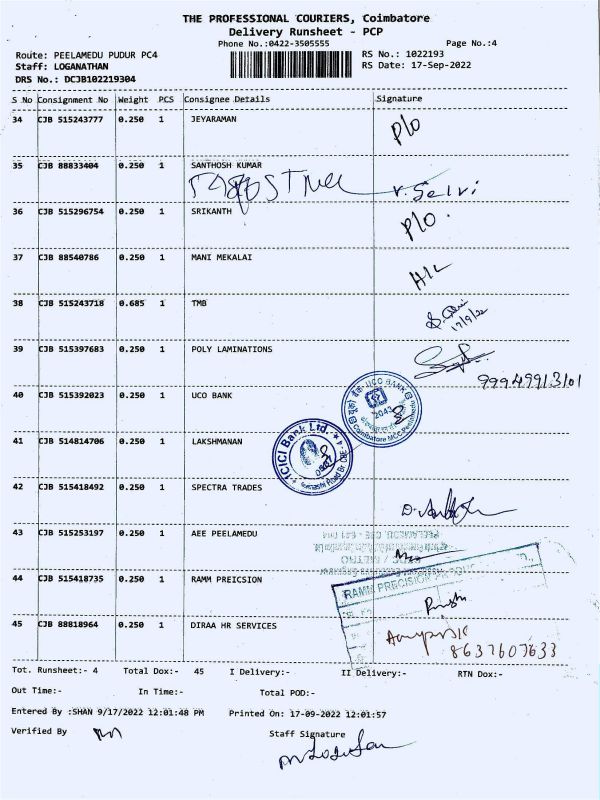 THE PROFESSIONAL COURIERS, Coimbatore
Delivery Runsheet - PCP
Phone No.:0422-3505555 Page No.:4
Route: PEELAMEDU PUDUR PC4 RS No.: 1022193
Staff: LOGANATHAN RS Date: 17-Sep-2022
DRS No.: DCJB102219304
S No Consignment No Weight PCS Consignee Details Signature
34 CJB 515243777 0.250 1 JEYARAMAN P/O
35 CJB 88833404 0.250 1 SANTHOSH KUMAR
V. Selvi
36 CJB 515296754 0.250 1 SRIKANTH P/O.
37 CJB 88540786 0.250 1 MANI MEKALAI H/L
38 CJB 515243718 0.685 1 TMB
17/9/22
39 CJB 515397683 0.250 1 POLY LAMINATIONS
99949913101
40 CJB 515392023 0.250 1 UCO BANK
UCO BANK
2043
Coimbatore MCC Peelamedu
41 CJB 514814706 0.250 1 LAKSHMANAN
ICICI Bank Ltd.
42 CJB 515418492 0.250 1 SPECTRA TRADES
43 CJB 515253197 0.250 1 AEE PEELAMEDU
PEELAMEDU, CBE - 641 004
44 CJB 515418735 0.250 1 RAMM PREICSION
RAMM PRECISION
45 CJB 88818964 0.250 1 DIRAA HR SERVICES
8637607633
Tot. Runsheet:- 4 Total Dox:- 45 I Delivery:- II Delivery:- RTN Dox:-
Out Time:- In Time:- Total POD:-
Entered By :SHAN 9/17/2022 12:01:48 PM Printed On: 17-09-2022 12:01:57
Verified By Staff Signature